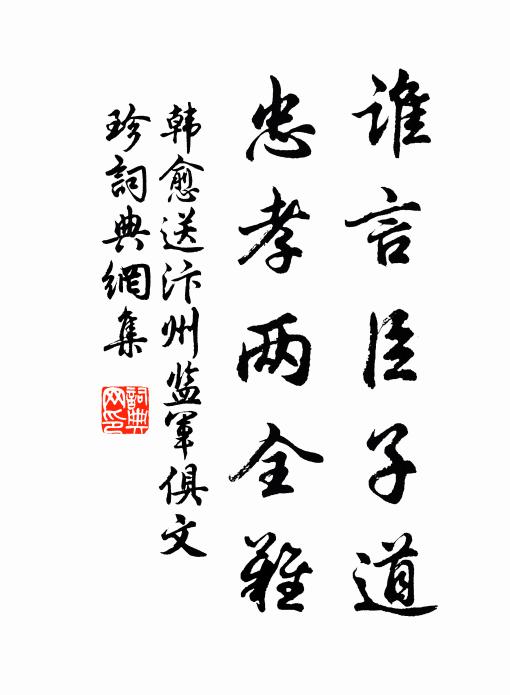 谁言臣子道
忠孝两全难
韩愈送汴州监军俱文
珍詞典網集
詞典网印